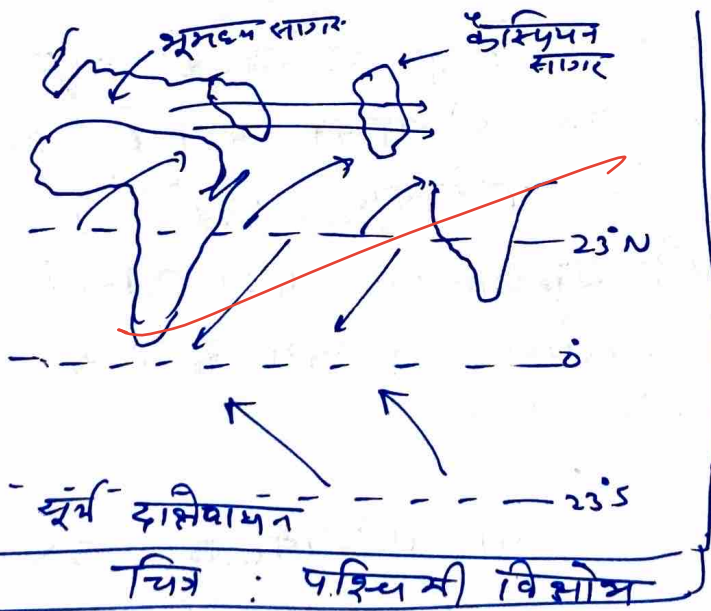 भूमध्य सागर
कैस्पियन
सागर
23°N
0°
23°S
सूर्य दक्षिणायन
चित्र : पश्चिमी विक्षोभ